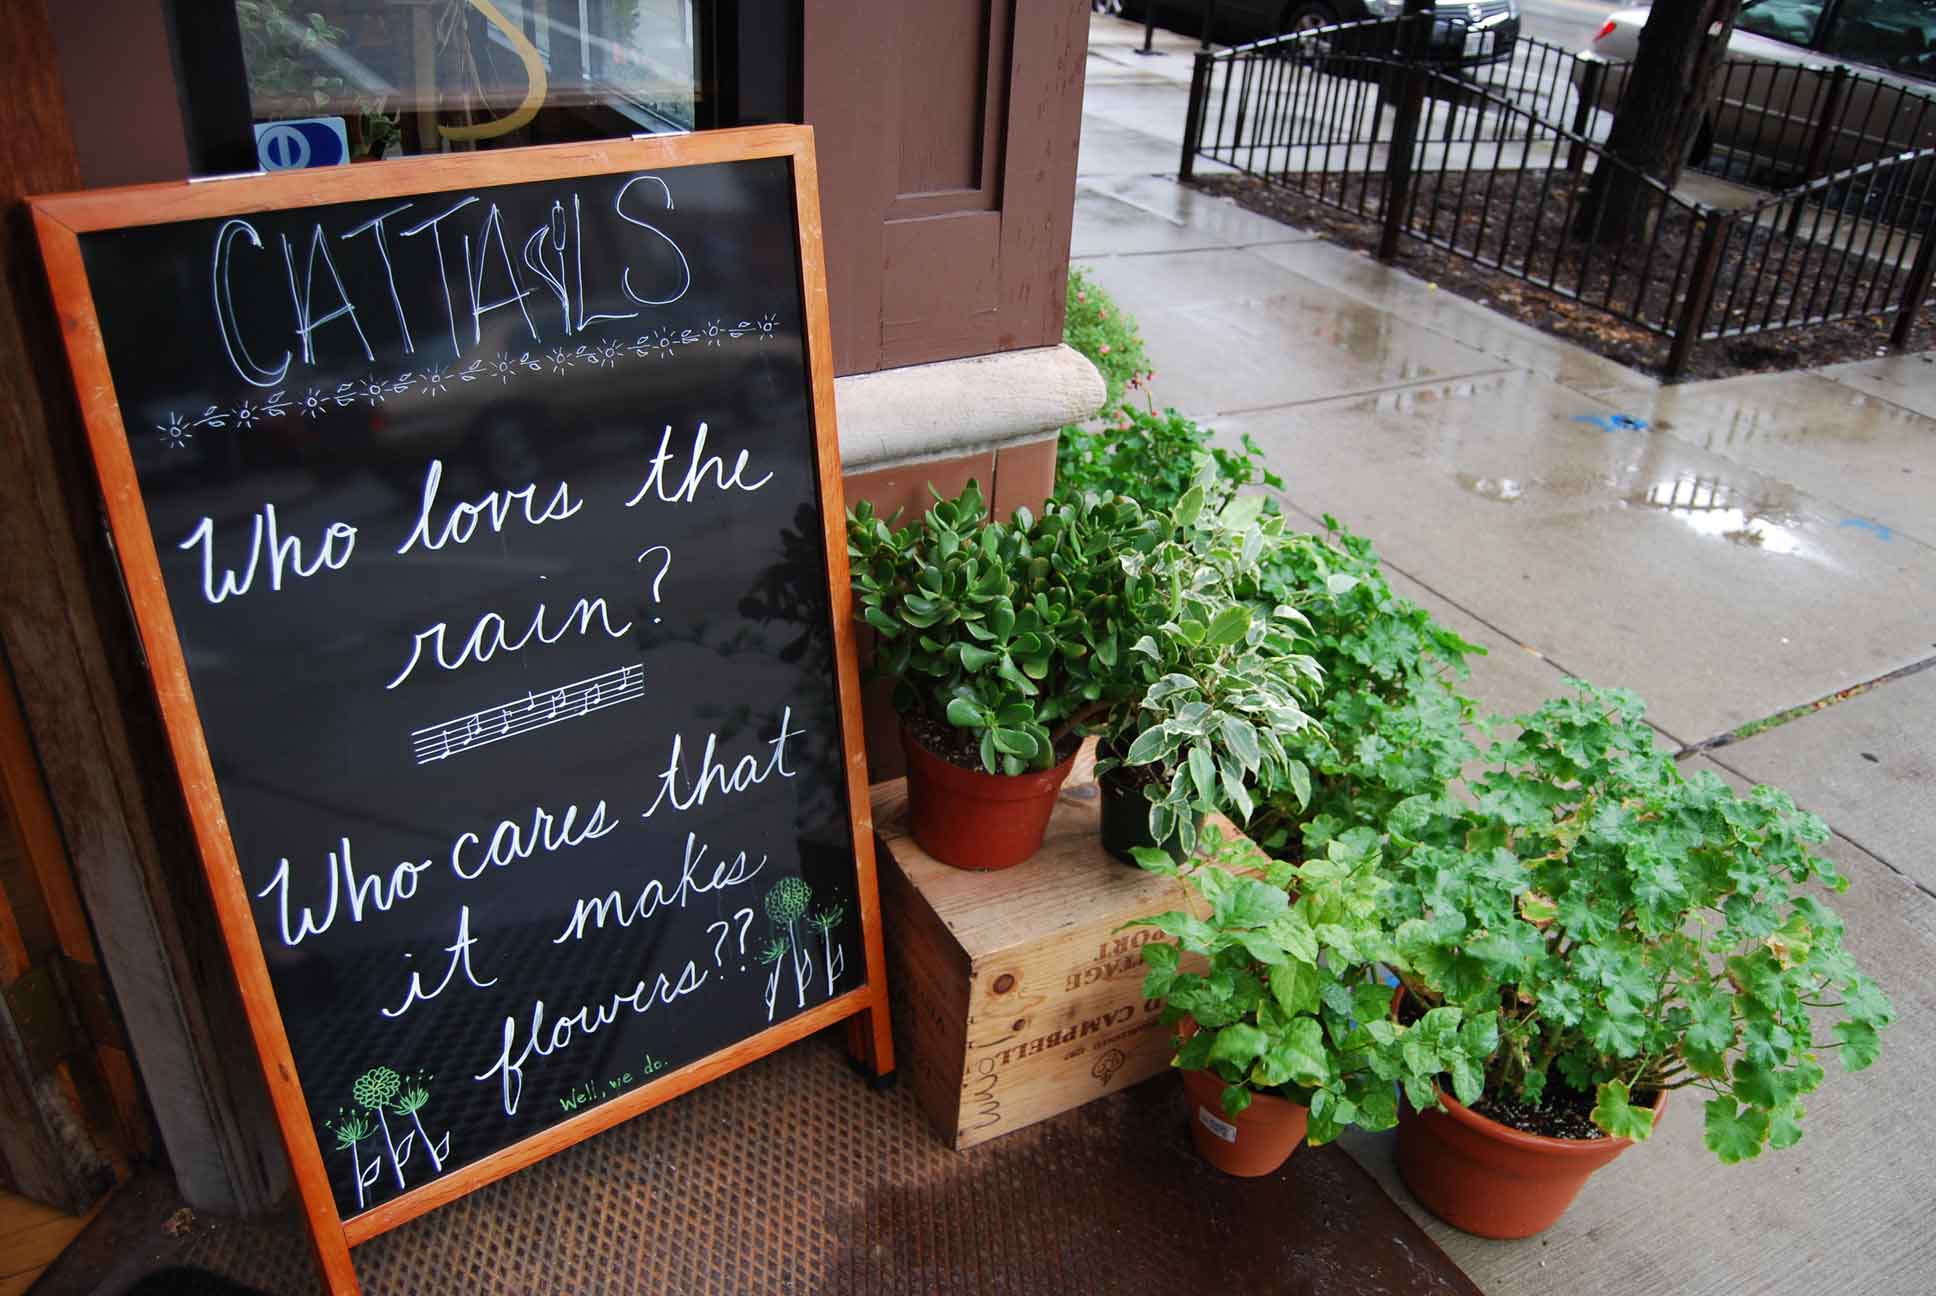 CATTAILS
Who loves the
rain?
Who cares that
it makes
flowers??
Well, we do.
PORT
CAMPBELL